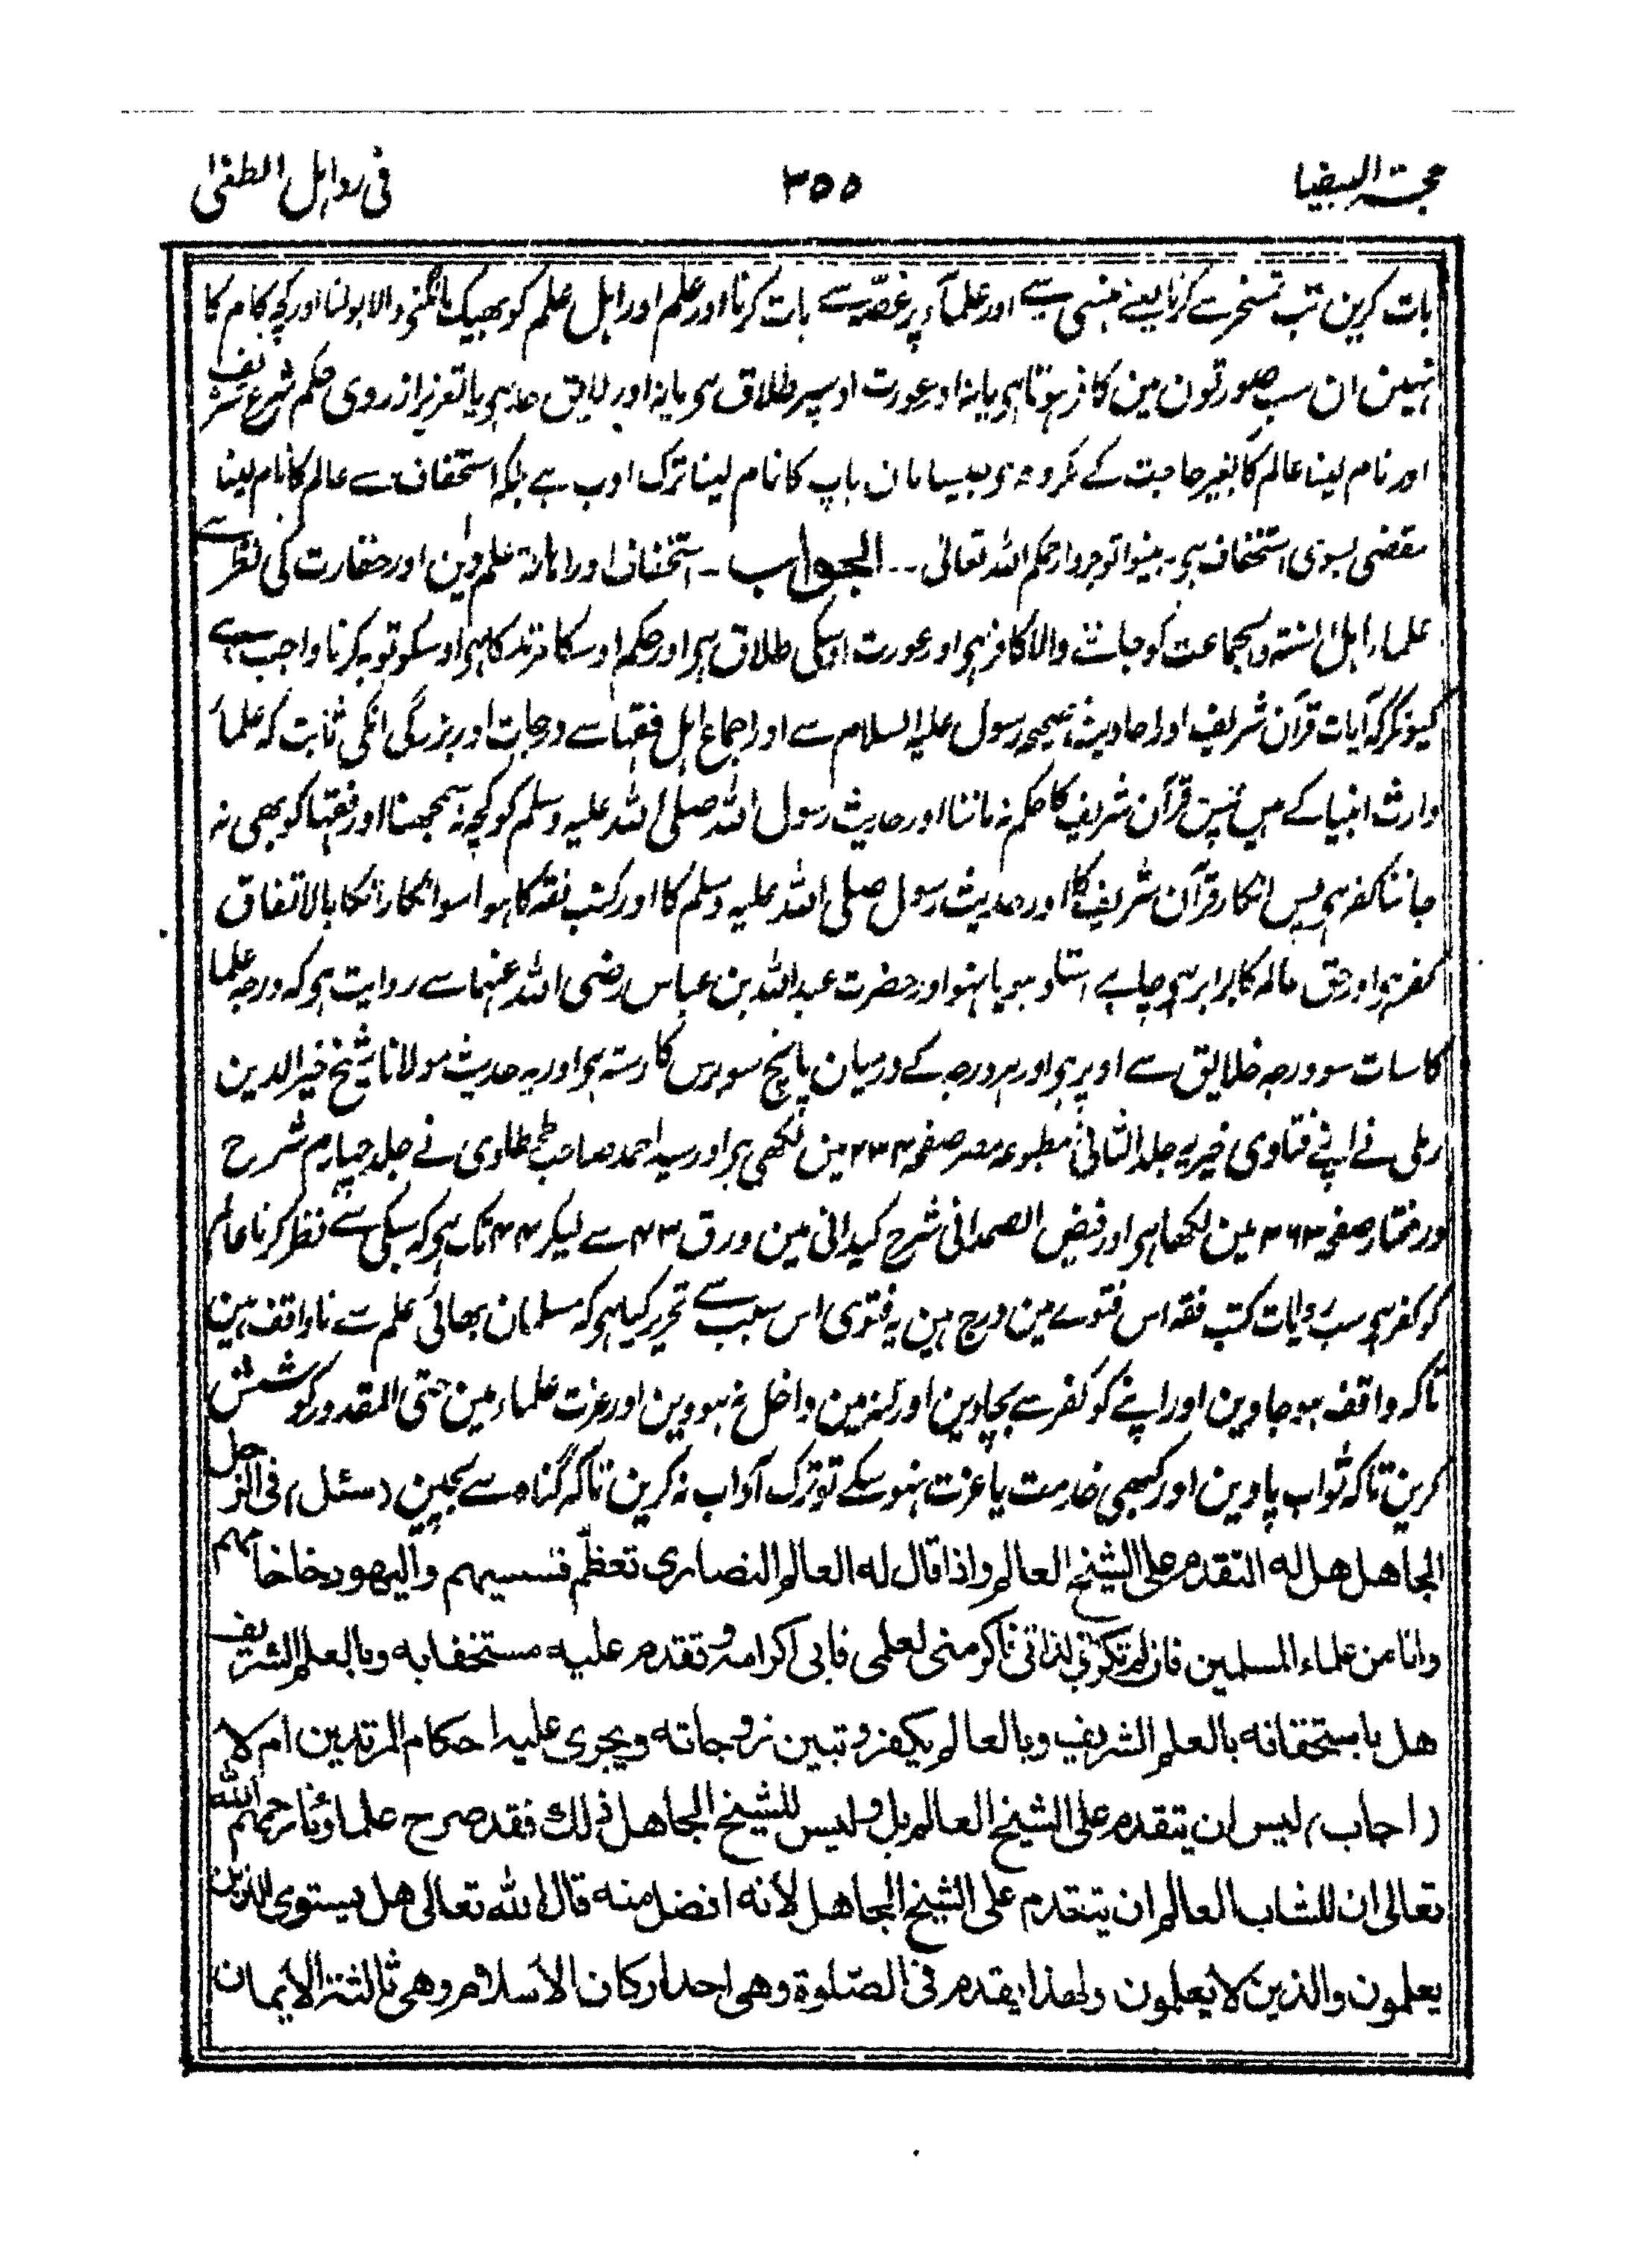 حجت البیضا ۳۵۵ فی رد اہل الطغیٰ
بات کرین تب تمسخر سے کرنا یعنے ہنسی سے اور علمآء پر غصّہ سے بات کرنا اور علم اور اہل علم کو بھیک مانگنے والا بولنا اور کچھ کام کا
نہین ان سب صورتون مین کافر ہوتا ہی یا نہ اور عورت اوسپر طلاق ہی یا نہ اور لایق حد ہی یا تعزیر از روی حکم شرع شریف
اور نام لینا عالم کا بغیر حاجت کے مکروہ ہی جیسا مان باپ کا نام لینا ترک ادب ہے بلکہ استخفاف سے عالم کا نام لینا
مفضی بسوی استخفاف ہی۔ بینوا توجروا رحمکم اللہ تعالیٰ۔۔ الجواب۔ استخفاف اور اہانۃ علم دین اور حقارت کی نظر سے
علماء اہل السنۃ والجماعت کو جاننے والا کافر ہی اور عورت اوسکی طلاق ہی اور حکم اوسکا مرتد کا ہی اوسکو توبہ کرنا واجب ہے
کیونکر کہ آیات قرآن شریف اور احادیث صحیحہ رسول علیہ السلام سے اور اجماع اہل فقہا سے درجات اور بزرگی انکی ثابت کہ علمائ
وارث انبیا کے ہین پس قرآن شریف کا حکم نہ ماننا اور حدیث رسول اللہ صلی اللہ علیہ وسلم کو کچھ نہ سمجھنا اور فقہا کو بھی نہ
جاننا کفر ہی پس انکار قرآن شریف کا اور حدیث رسول صلی اللہ علیہ وسلم کا اور کتب فقہ کا ہوا سو انکار انکا بالاتفاق
کفر ہی اور حق عالم کا برابر ہی چاہے استاد ہو یا نہو اور حضرت عبداللہ بن عباس رضی اللہ عنہما سے روایت ہی کہ درجہ علما
کا سات سو درجہ خلایق سے اوپر ہی اور ہر درجہ کے درمیان پانچ سو برس کا رستہ ہی اور یہ حدیث مولانا شیخ خیر الدین
رملی نے اپنے فتاوی خیریہ جلد الثانی مطبوعہ مصر صفحہ ۲۳۴ مین لکھی ہی اور سید احمد صاحب طحطاوی نے جلد چہارم شرح
درمختار صفحہ ۳۶۳ مین لکھا ہی اور فیض الصمدانی شرح کیدانی مین ورق ۴۳ سے لیکر ۴۴ تک ہی کہ سبکی سے نظر کرنا عالم
کو کفر ہی سب روایات کتب فقہ اس فتوے مین درج ہین یہ فتوی اس سبب سے تحریر کیا ہی کہ مسلمان بھائی علم سے ناواقف ہین
تاکہ واقف ہو جاوین اور اپنے کو کفر سے بچاوین اور کفر مین داخل نہ ہووین اور عزت علماء مین حتی المقدور کوشش
کرین تاکہ ثواب پاوین اور کبھی خدمت یا عزت نہو سکے تو ترک آداب نہ کرین تاکہ گناہ سے بچین (سئل) فی الرجل
الجاهل هل له التقدم على الشيخ العالم واذا قال له العالم النصارى تعظّم قسيسهم واليهود خاخامهم
وانا من علماء المسلمين فان لم تكرمنی لذاتی فاكرمنی لعلمی فابى اكرامه وتقدم عليه مستخفا به وبالعلم الشريف
هل باستخفافه بالعلم الشريف وبالعالم يكفر وتبين زوجاته ويجرى عليه احكام المرتدين ام لا
(اجاب) ليس ان يتقدم على الشيخ العالم بل وليس للشيخ الجاهل ذلك فقد صرح علماؤنا رحمهم الله
تعالى ان للشاب العالم ان يتقدم على الشيخ الجاهل لأنه افضل منه قال الله تعالى هل يستوى الذين
يعلمون والذين لا يعلمون ولهذا يقدم فی الصّلوة وهی احد اركان الأسلام وهی ثالثة الأيمان